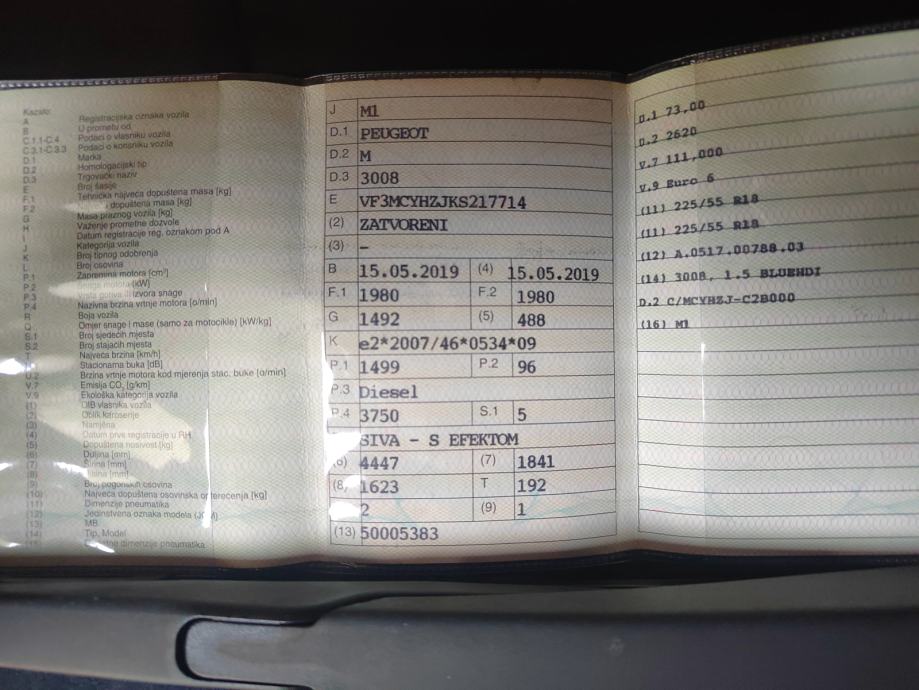 Kazalo:
A Registracijska oznaka vozila
B U prometu od
C.1.1-C.4 Podaci o vlasniku vozila
C.3.1-C.3.3 Podaci o korisniku vozila
D.1 Marka
D.2 Homologacijski tip
D.3 Trgovački naziv
E Broj šasije
F.1 Tehnička najveća dopuštena masa [kg]
F.2 dopuštena masa [kg]
G Masa praznog vozila [kg]
H Važenje prometne dozvole
I Datum registracije reg. oznakom pod A
J Kategorija vozila
K Broj tipnog odobrenja
L Broj osovina
P.1 Zapremina motora [cm³]
P.2 Snaga motora [kW]
P.3 Vrsta goriva ili izvora snage
P.4 Nazivna brzina vrtnje motora [o/min]
R Boja vozila
Q Omjer snage i mase (samo za motocikle) [kW/kg]
S.1 Broj sjedećih mjesta
S.2 Broj stajaćih mjesta
T Najveća brzina [km/h]
Stacionarna buka [dB]
U.2 Brzina vrtnje motora kod mjerenja stac. buke [o/min]
V.7 Emisija CO₂ [g/km]
V.9 Ekološka kategorija vozila
(1) OIB vlasnika vozila
(2) Oblik karoserije
(3) Namjena
(4) Datum prve registracije u RH
(5) Dopuštena nosivost [kg]
(6) Duljina [mm]
(7) Širina [mm]
(8) Visina [mm]
(9) Broj pogonskih osovina
(10) Najveća dopuštena osovinska opterećenja [kg]
(11) Dimenzije pneumatika
(12) Jedinstvena oznaka modela
(13) MB
(14) Tip, Model
dimenzije pneumatika
J M1
D.1 PEUGEOT
D.2 M
D.3 3008
E VF3MCYHZJKS217714
(2) ZATVORENI
(3) –
B 15.05.2019 (4) 15.05.2019
F.1 1980 F.2 1980
G 1492 (5) 488
K e2*2007/46*0534*09
P.1 1499 P.2 96
P.3 Diesel
P.4 3750 S.1 5
SIVA - S EFEKTOM
(6) 4447 (7) 1841
(8) 1623 T 192
2 (9) 1
(13) 50005383
D.1 73,00
D.2 2620
V.7 111,000
V.9 Euro 6
(11) 225/55 R18
(11) 225/55 R18
(12) A.0517.00788.03
(14) 3008, 1.5 BLUEHDI
D.2 C/MCYHZJ-C2B000
(16) M1